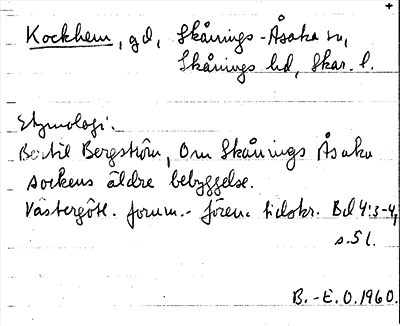 +
Kockhem, gd, Skånings-Åsaka sn,
Skånings hd, Skar. l.
Etymologi:
Bertil Bergström, Om Skånings Åsaka
sockens äldre bebyggelse.
Västergötl. fornm.- fören. tidskr. Bd 4:3-4,
s. 51.
B.-E. O. 1960.